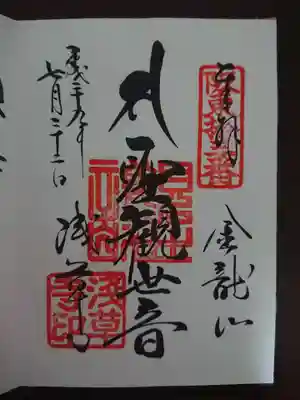 奉拝
金龍山
聖観世音
浅草寺
浅草寺印
平成二十九年
七月二十二日